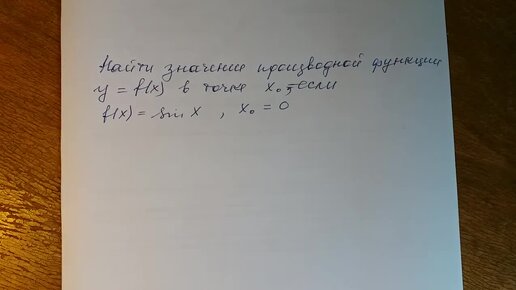 Найти значение производной функции
y = f(x) в точке x₀, если
f(x) = sin x , x₀ = 0